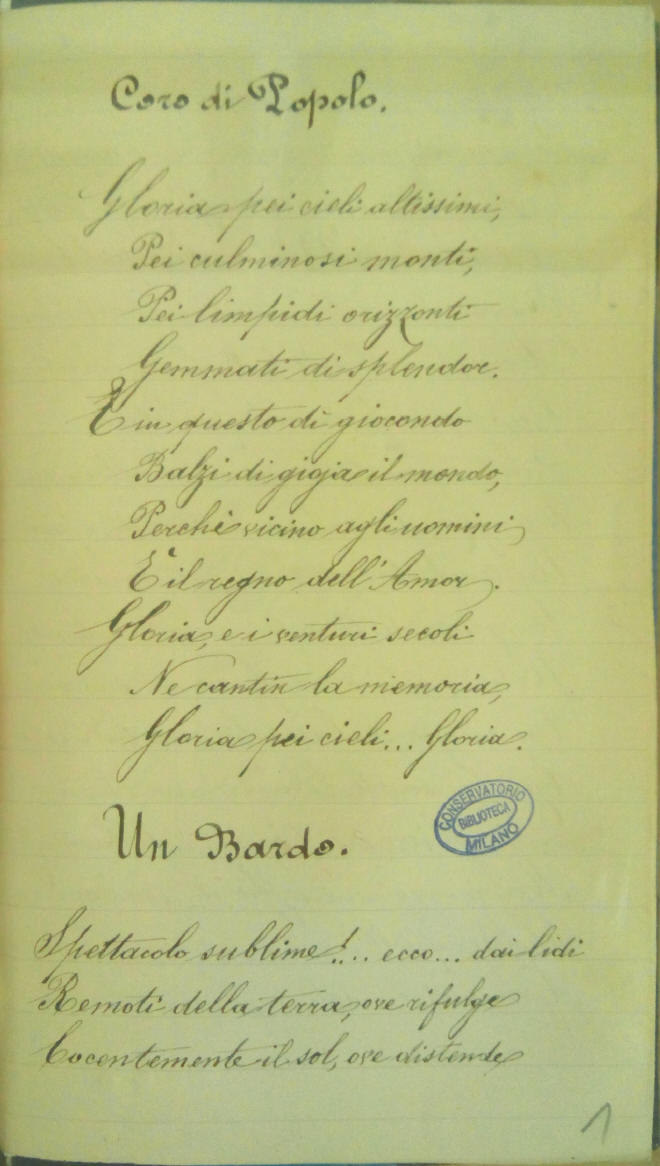 Coro di Popolo.
Gloria pei cieli altissimi,
Pei culminosi monti,
Pei limpidi orizzonti
Gemmati di splendor.
E in questo dì giocondo
Balzi di gioja il mondo,
Perchè vicino agli uomini
È il regno dell'Amor.
Gloria, e i venturi secoli
Ne cantin la memoria,
Gloria pei cieli... Gloria.
CONSERVATORIO
BIBLIOTECA
MILANO
Un Bardo.
Spettacolo sublime!... ecco... dai lidi
Remoti della terra, ove rifulge
Cocentemente il sol, ove distende
1